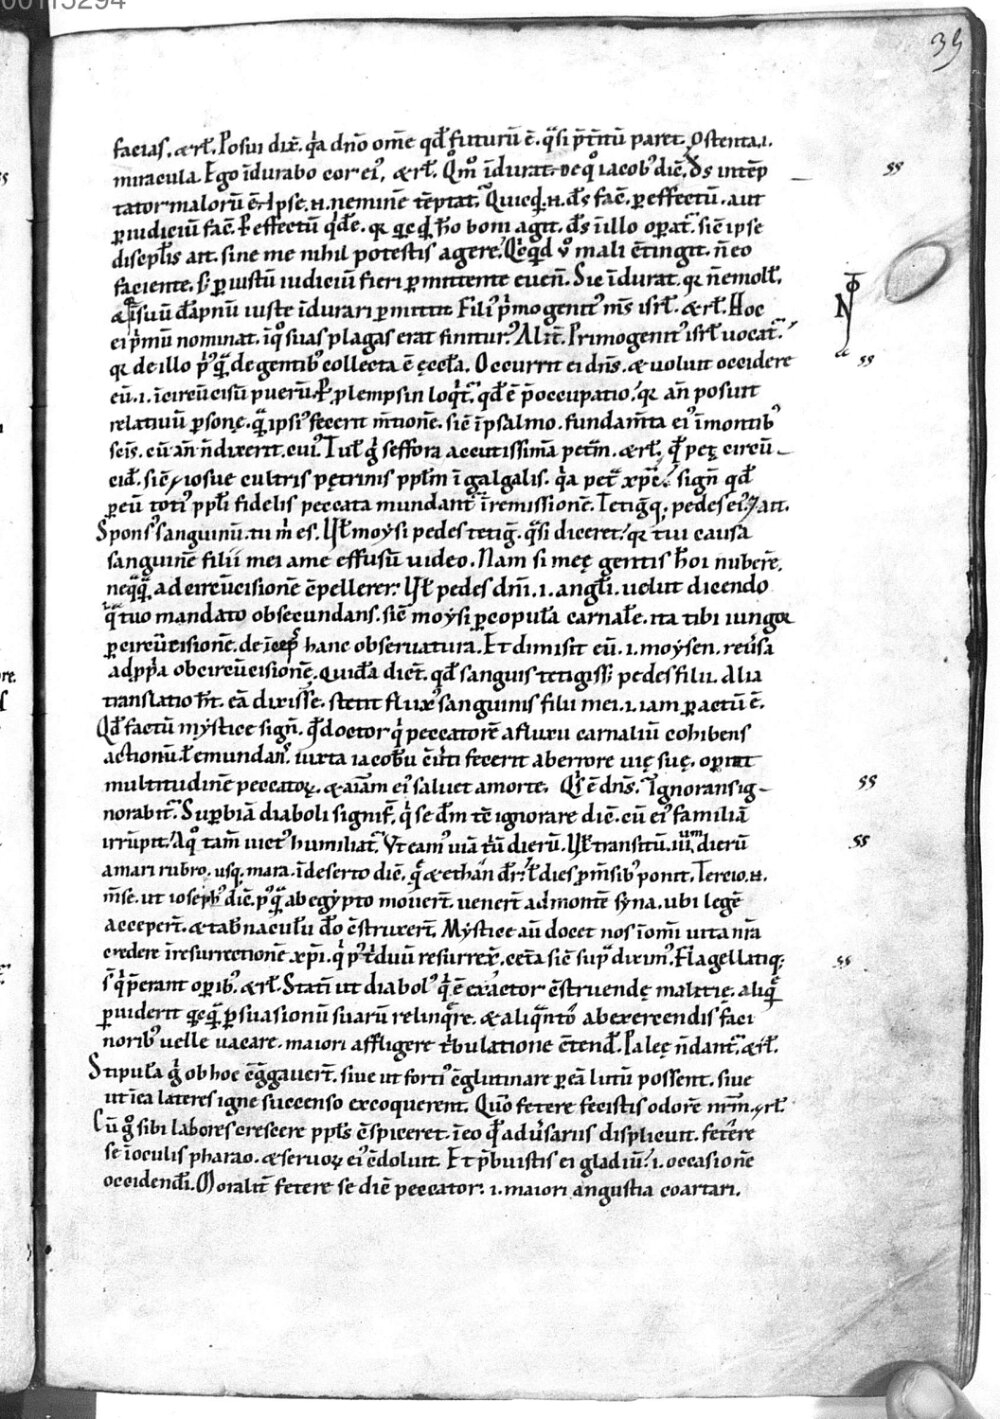 00115294
39
facias. & rł. Posui dix̄. q̇a dn̄o om̄e qđ futurū ē. q̄si p̄t̄itū paret. Ostenta .i.
miracula. Ego īdurabo cor ei', & rł. Q̄m̊ īdurat. de q̊ iacob' dic̄. d̄s intēp
tator malorū ē. Ipse .n. neminē tēptat. Quicq̇d .n. d̄s fac̄. p effectū. aut
p iudiciū fac̄. P effectū q̇dē. qr boni agit. d̄s ī illo op̄at'. sic̄ ipse
discipl̄is ait. sine me nihil potestis agere. mali c̄tingit. n̄ eo
faciente. s; p iustū iudiciū fieri pmittente euen̄. Sic īdurat. qr n̄ emoll̄.
iuste īdurari pmittit. Fili' ṗmogenit' m̄s isrł. & rł. Hoc
ei ṗmū nominat. ī q̊ suas plagas erat finitur'. Alit̄. Primogenit' isrł uocat'.
qr de illo ṗ' de gentib' collecta ē ęccła. Occurrit ei dn̄s. & uoluit occidere
eū .i. īcircūcisū puerū. P plempsin loq̇t'. qđ ē p̄occupatio. qr an̄ posuit
relatiuū psonę. ipsi' fecerit m̄tionē. sic̄ ī psalmo. fundam̄ta ei' ī montib'
sc̄is. cū an̄ n̄ dixerit. cui'. Tuł g̊ seffora acutissimā pet̄m̄. & rł. pet̄ circū
cid̄. sic̄ & iosue cultris petrinis ppł̄m ī galgalis. q̇a pet̄ xp̄c. sign̄ qđ
p eū toti' ppł̄i fidelis peccata mundant' ī remissionē. Tetigq; pedes ei'. & ait.
Spons' sanguinū. tu m̊ es. Uł moysi pedes tetiḡ. q̄si diceret. qr tui causa
sanguinē filii mei a me effusū uideo. Nam si meę gentis h̄oi nuberē.
neq̄q̄ ad circūcisionē c̄pellerer. Uł pedes dn̄i .i. angłi. uoluit dicendo
tuo mandato obsecundans. sic̄ moysi p copulā carnalē. ita tibi iungor
p circūcisionē. hanc obseruatura. Et dimisit eū .i. moysen. reu̇sa
ad pp̄a ob circūcisionē. Quidā dic̄t. qđ sanguis tetigiss; pedes filii. Alia
translatio h̄t. eā dixisse. stetit flux' sanguinis filii mei .i. iam pactū ē.
Qđ factū mystice sign̄. qđ doctor q̇ peccatorē a fluxu carnaliū cohibens
actionū. ł emundan'. iuxta iacobū errore uię suę. opiat
multitudinē peccatoꝝ. & aīam ei' saluet a morte. Q̇s ē dn̄s. Ignorans ig-
norabit'. Supbiā diaboli signif̄. q̇ se dm̄ tē ignorare dic̄. cū ei' familiā
irrūpit. A q̊ tam̄ uict' humiliat'. Ut eam' uiā ṫū dierū. Uł transitū .iii.um dierū
a mari rubro. usq; mara. ī deserto dic̄. q̄ & ethan d̄r. ł dies p̄m̄sib' ponit. Tercio .n.
m̄se. ut ioseph' dic̄. p'q̄ ab egypto mouert̄. uenert̄ ad montē syna. ubi legē
accepert̄. & tab̄naculū do c̄struxert̄. Mystice au̅ docet nos ī om̄i uita n̄ra
credere ī resurrectionē xp̄i. q̇ p' ṫduū resurrex̄. cet̄a sic̄ sup̄ dixim'. Flagellatiq;
s̄ q̇ p̄erant opib'. & rł. Statī ut diabol' q̇ ē exactor c̄struendę malitię. aliq̄
puiderit suasionū suarū relinq̄re. & aliq̄nto ab exercendis faci
norib' uelle uacare. maiori affligere ṫbulatione c̄tend̄. Paleę n̄ dant'. & rł.
Stipulā g̊ ob hoc ēḡgauert̄. siue ut forti' c̄glutinare p eā lutū possent. siue
ut īca lateres igne succenso excoquerent. Quō fetere fecistis odorē nr̄m̄. & rł.
Cū g̊ sibi labores crescere ppł̄s c̄spiceret. ī eo qđ adu̇sariis displicuit. fetere
se ī oculis pharao. & seruoꝝ ei' c̄doluit. Et p̄buistis ei gladiū .i. occasionē
occidendi. Moralit̄ fetere se dic̄ peccator .i. maiori angustia coartari.
ss
ss
ss
ss
ss